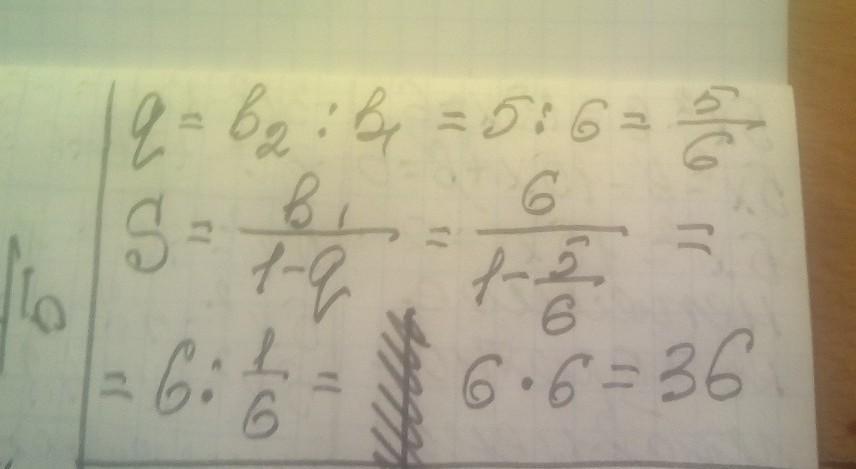 q = b₂ : b₁ = 5 : 6 = 5/6
S = b₁/(1-q) = 6/(1-5/6) =
= 6 : 1/6 = 6 · 6 = 36